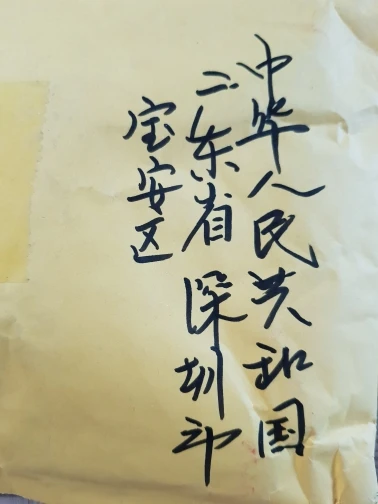 中华人民共和国
广东省深圳市
宝安区